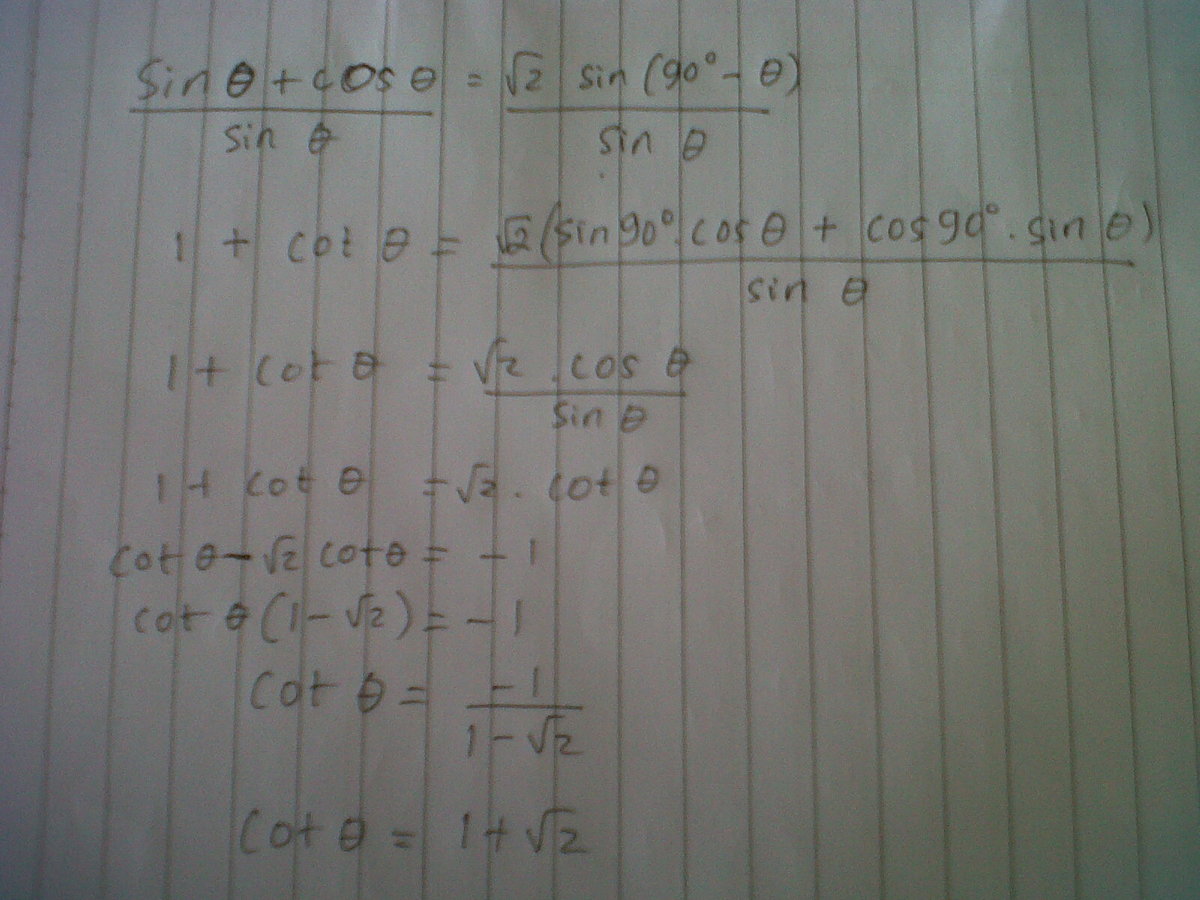 sin θ + cos θ / sin θ = √2 sin (90° - θ) / sin θ
1 + cot θ = √2 (sin 90° . cos θ + cos 90° . sin θ) / sin θ
1 + cot θ = √2 . cos θ / sin θ
1 + cot θ = √2 . cot θ
cot θ - √2 cot θ = - 1
cot θ (1 - √2) = - 1
cot θ = -1 / 1 - √2
cot θ = 1 + √2